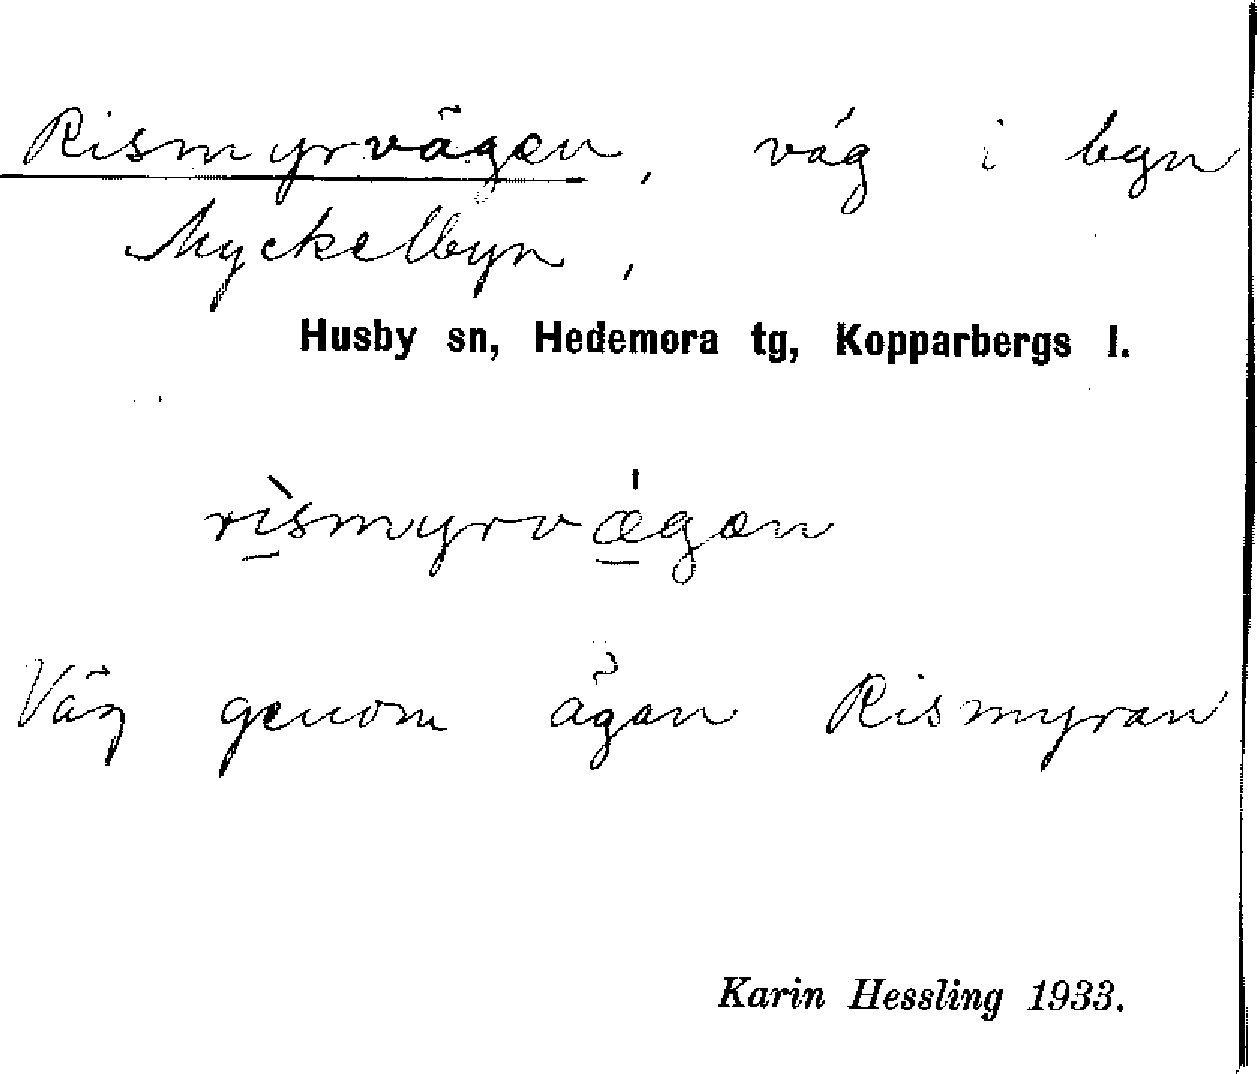 Rismyrvägen, väg i byn
Myckelbyn,
Husby sn, Hedemora tg, Kopparbergs l.
rìsmyrvǽgæn
Väg genom ägan Rismyran
Karin Hessling 1933.